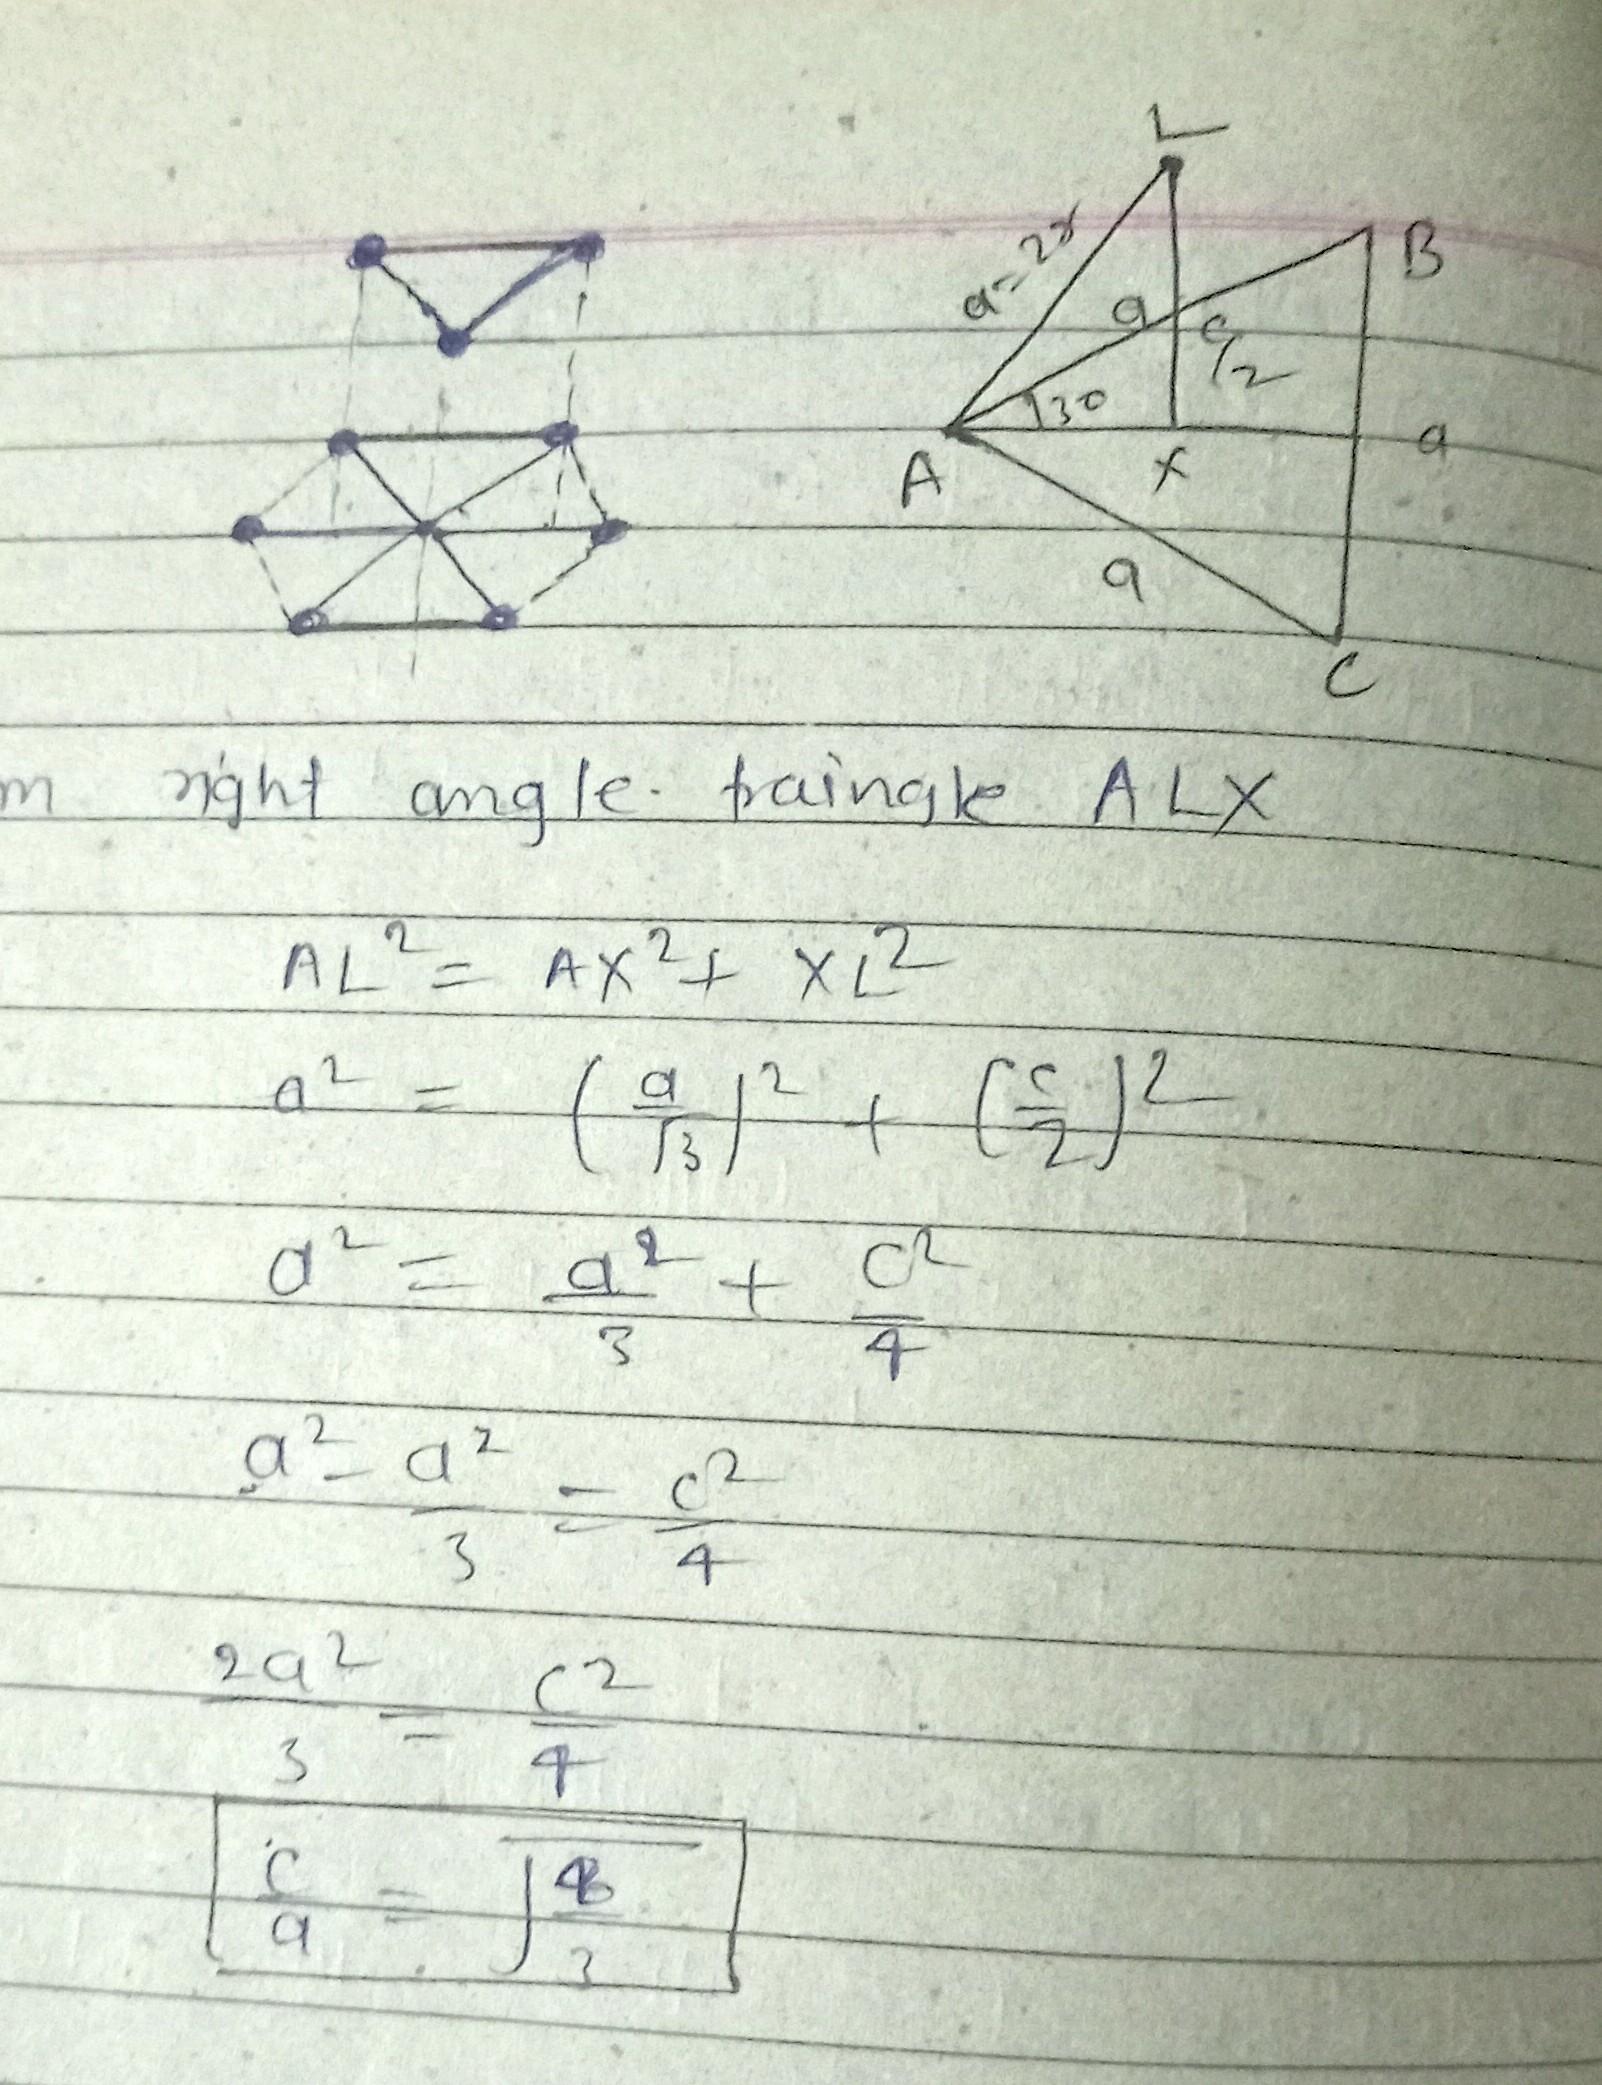 L
B
a=2r
a
c/2
30
A
X
a
a
C
m right angle. traingle ALX
AL² = AX² + XL²
a² = (a/√3)² + (c/2)²
a² = a²/3 + c²/4
a² - a²/3 = c²/4
2a²/3 = c²/4
c/a = √(8/3)